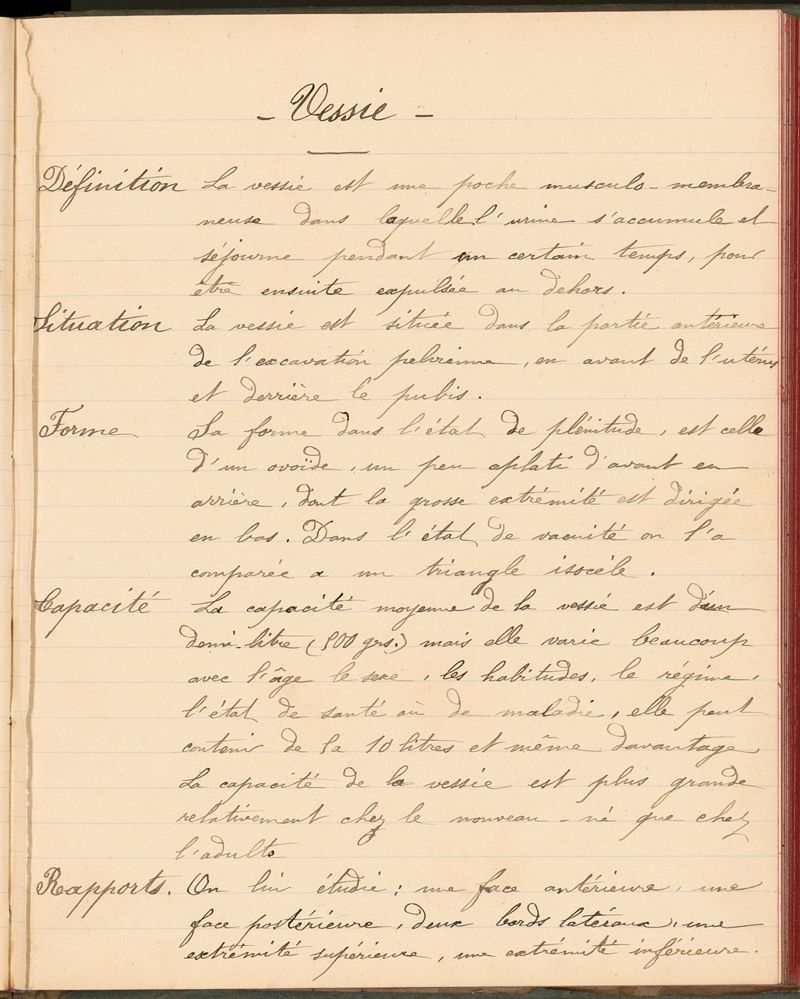 - Vessie -
Définition La vessie est une poche musculo-membra-
neuse dans laquelle l'urine s'accumule et
séjourne pendant un certain temps, pour
être ensuite expulsée au dehors.
Situation La vessie est située dans la partie antérieure
de l'excavation pelvienne, en avant de l'utérus
et derrière le pubis.
Forme Sa forme dans l'état de plénitude, est celle
d'un ovoïde, un peu aplati d'avant en
arrière, dont la grosse extrémité est dirigée
en bas. Dans l'état de vacuité on l'a
comparée a un triangle isocèle.
Capacité La capacité moyenne de la vessie est d'un
demi-litre (500 grs.) mais elle varie beaucoup
avec l'âge le sexe, les habitudes, le régime,
l'état de santé où de maladie, elle peut
contenir de 5 a 10 litres et même davantage
La capacité de la vessie est plus grande
relativement chez le nouveau-né que chez
l'adulte
Rapports. On lui étudie : une face antérieure, une
face postérieure, deux bords latéraux, une
extrémité supérieure, une extrémité inférieure.